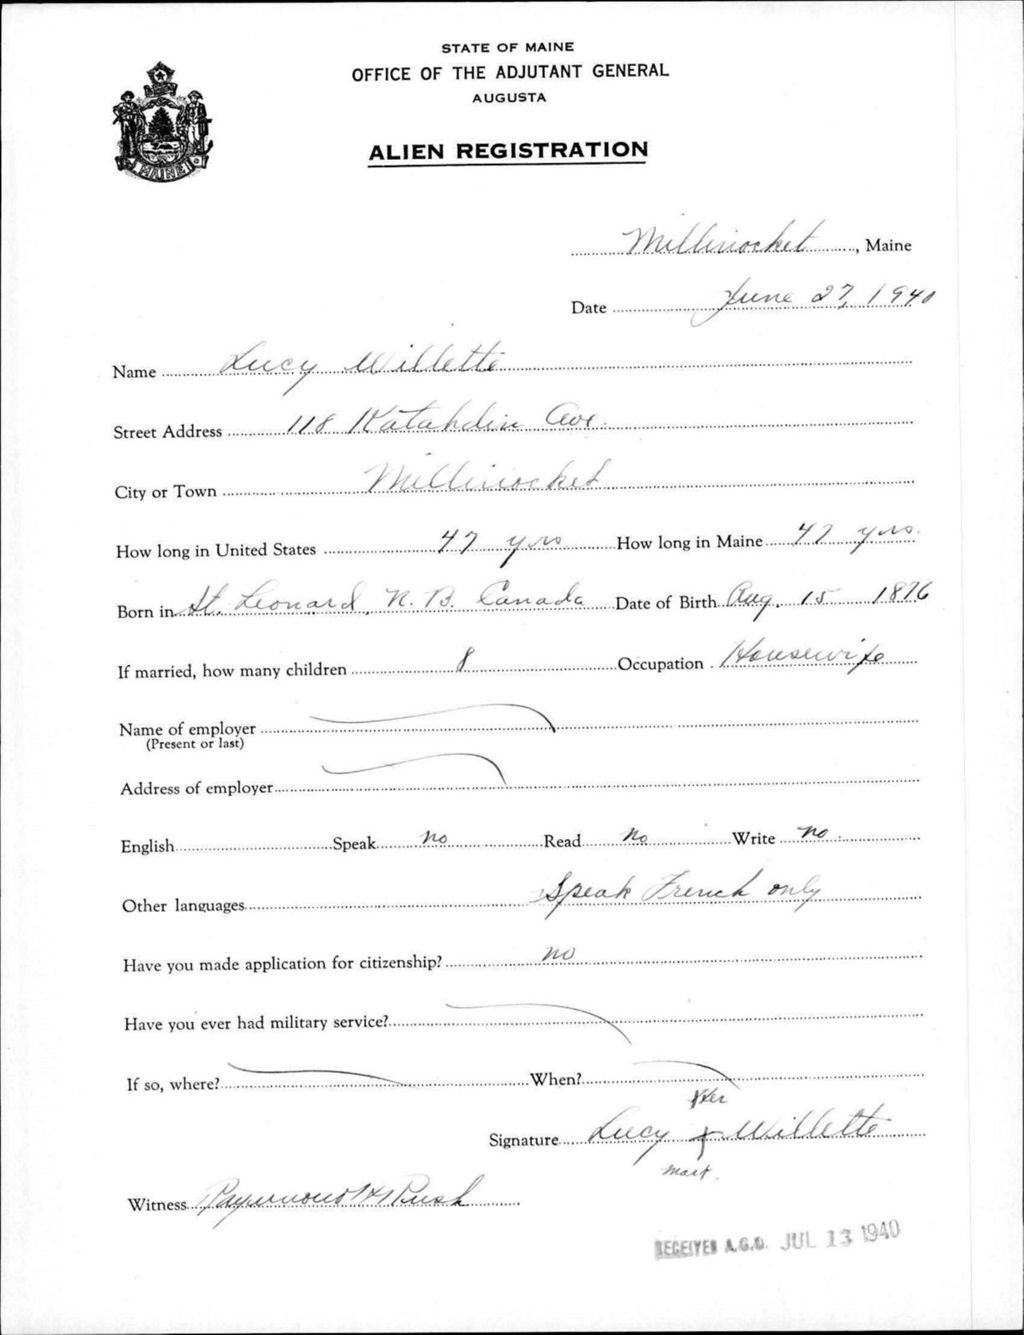 STATE OF MAINE
OFFICE OF THE ADJUTANT GENERAL
AUGUSTA
ALIEN REGISTRATION
MAINE
Millinocket, Maine
Date June 27, 1940
Name Lucy Willette
Street Address 118 Katahdin Ave.
City or Town Millinocket
How long in United States 47 yrs How long in Maine 47 yrs.
Born in St. Leonard, N. B. Canada Date of Birth Aug. 15 1876
If married, how many children 8 Occupation Housewife
Name of employer
(Present or last)
Address of employer
English Speak no Read No Write no
Other languages Speak French only
Have you made application for citizenship? no
Have you ever had military service?
If so, where? When?
Her
Signature Lucy X Willette
mark.
Witness Raymond H Rush
RECEIVED A.G.O. JUL 13 1940